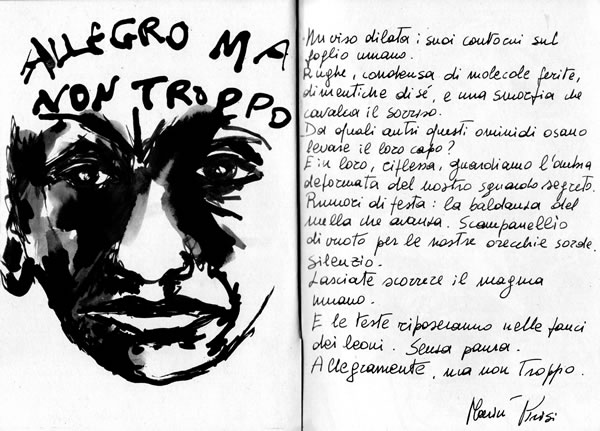 ALLEGRO MA
NON TROPPO
Un viso dilata i suoi contorni sul
foglio umano.
Rughe, condensa di molecole ferite,
dimentiche di sé, e una smorfia che
cavalca il sorriso.
Da quali antri questi ominidi osano
levare il loro capo?
E in loro, riflessa, guardiamo l'ombra
deformata del nostro sguardo segreto.
Rumori di festa: la baldanza del
nulla che avanza. Scampanellio
di vuoto per le nostre orecchie sorde.
Silenzio.
Lasciate scorrere il magma
umano.
E le teste riposeranno nelle fauci
dei leoni. Senza paura.
Allegramente, ma non troppo.